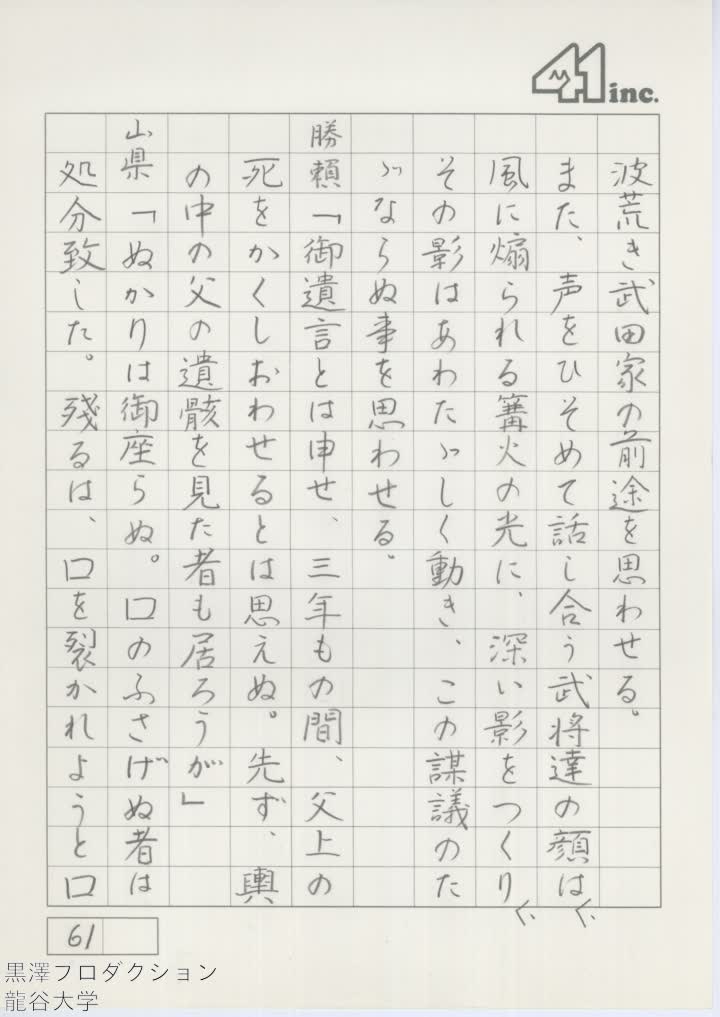 41 inc.
波荒き武田家の前途を思わせる。
また、声をひそめて話し合う武将達の顔は、
風に煽られる篝火の光に、深い影をつくり、
その影はあわたゞしく動き、この謀議のた
ゞならぬ事を思わせる。
勝頼「御遺言とは申せ、三年もの間、父上の
死をかくしおわせるとは思えぬ。先ず、輿
の中の父の遺骸を見た者も居ろうが」
山県「ぬかりは御座らぬ。口のふさげぬ者は
処分致した。残るは、口を裂かれようと口
61
黒澤フロダクション
龍谷大学